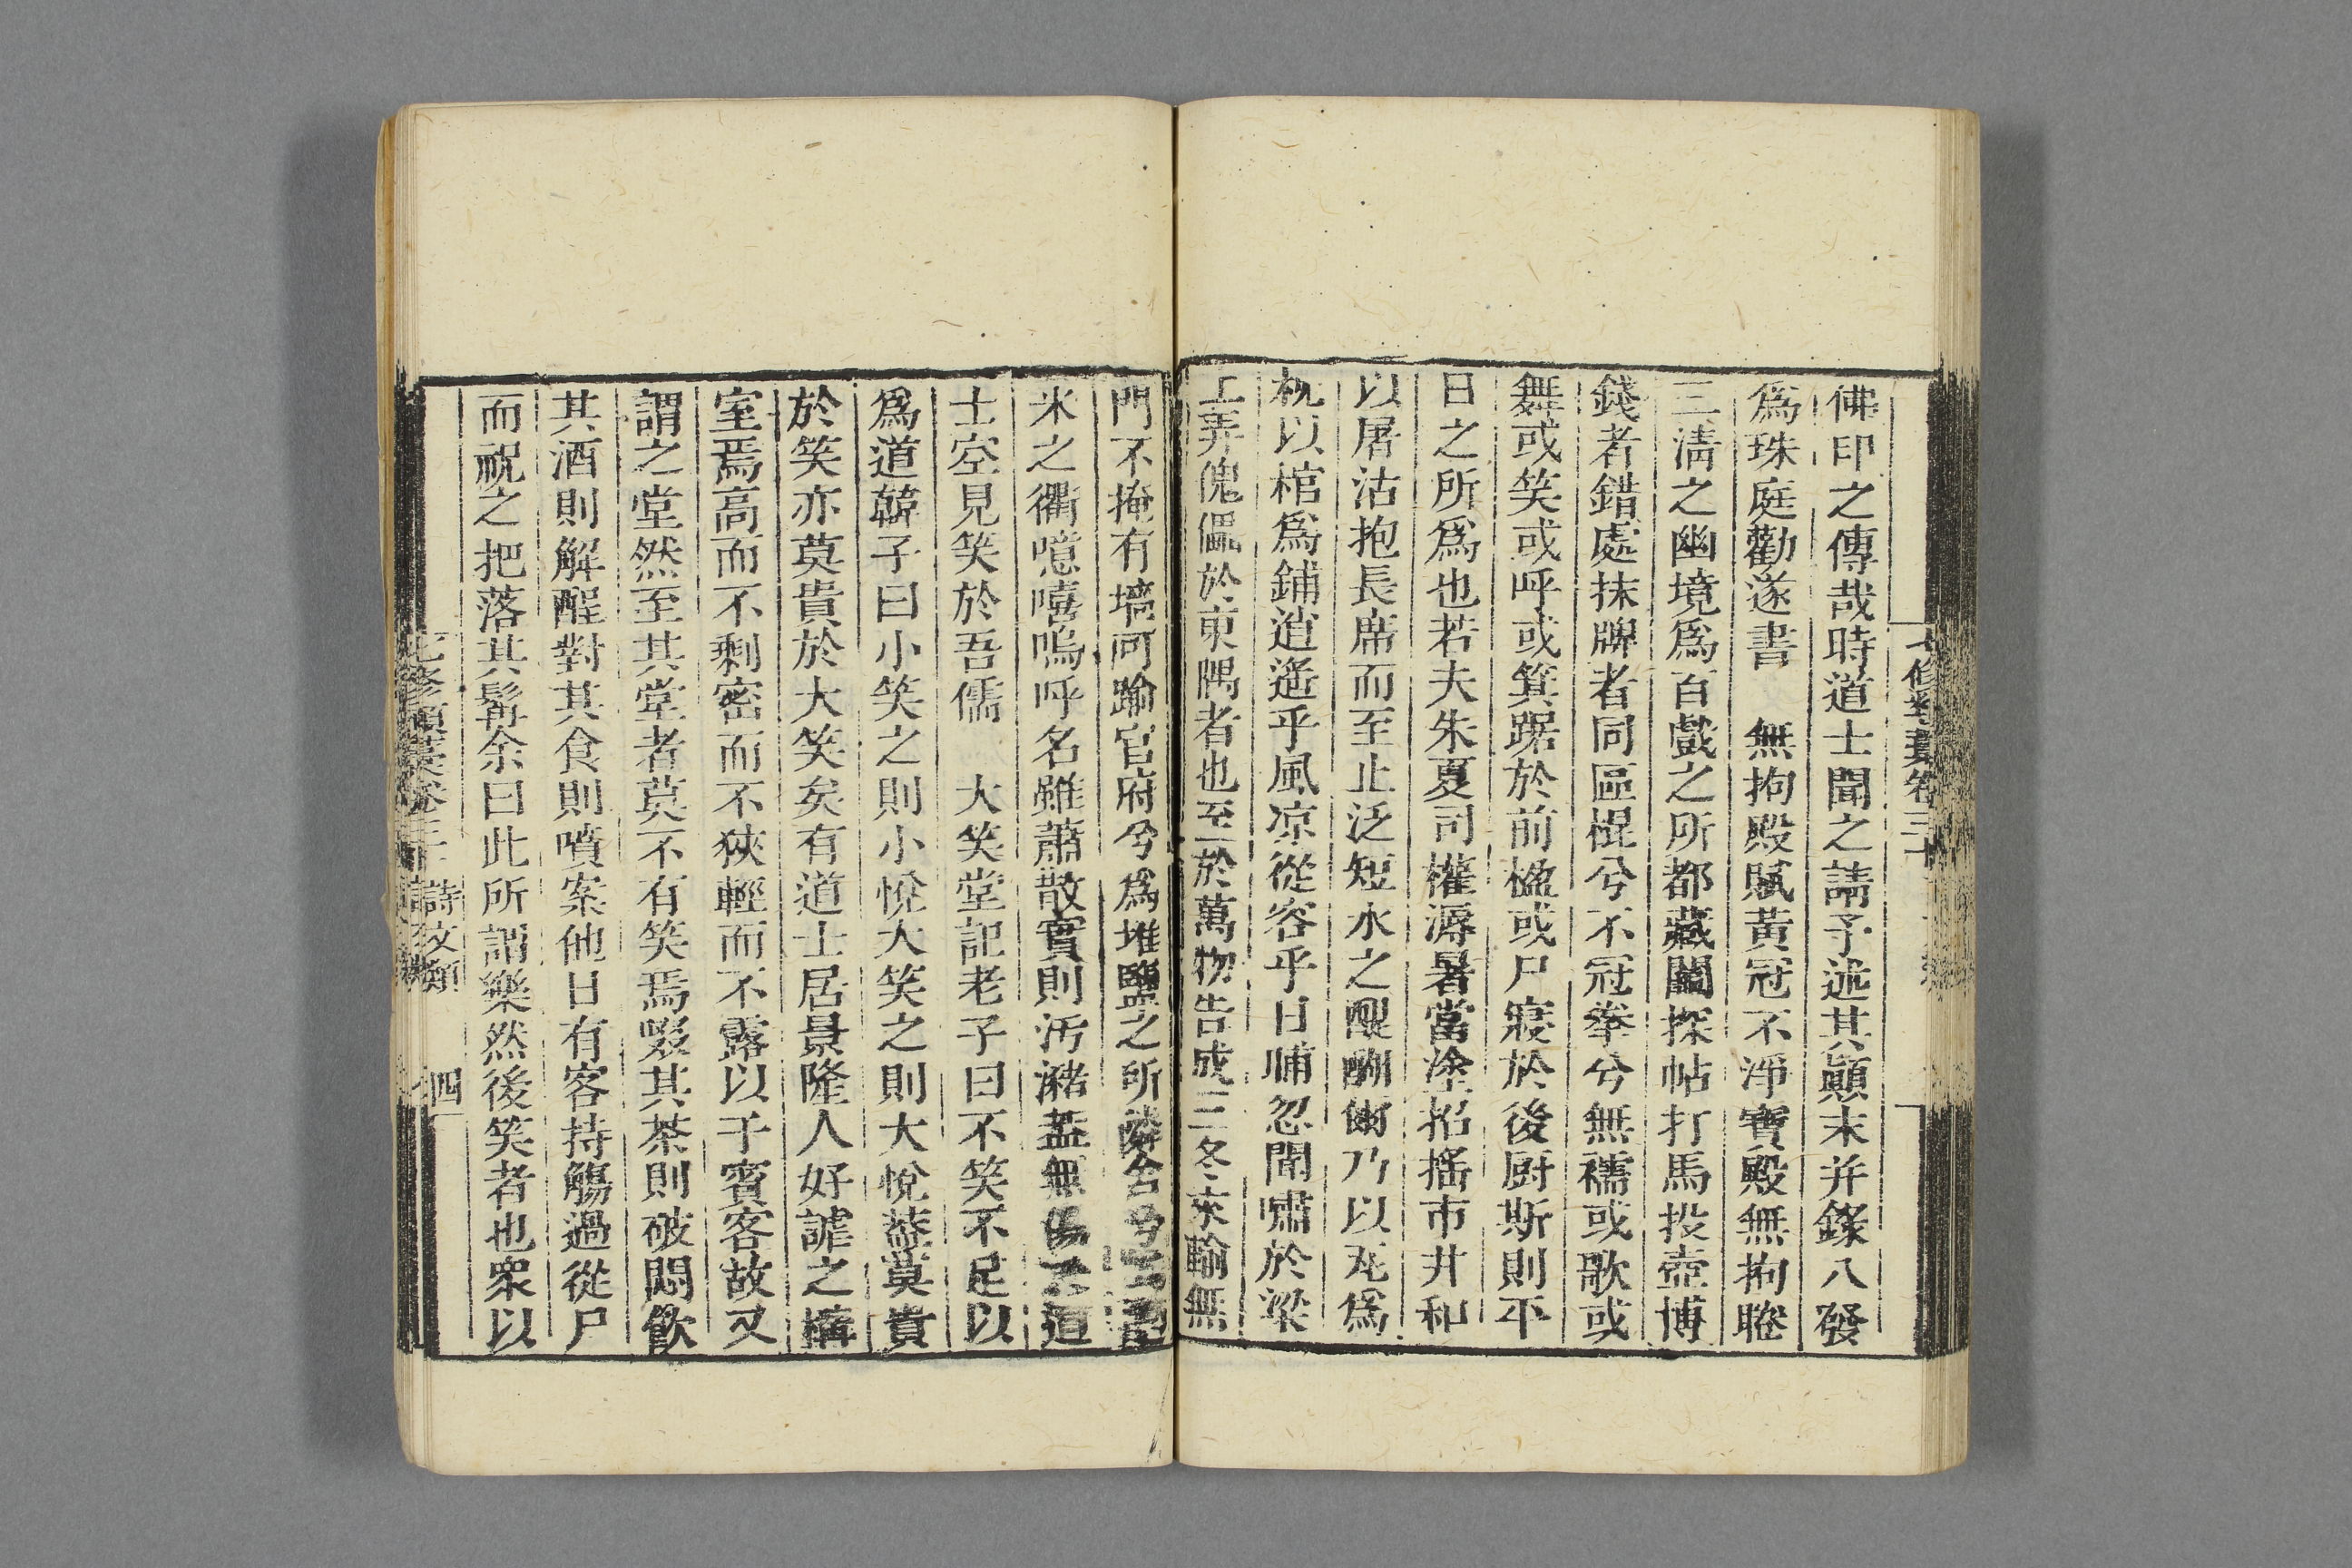 七修類藁卷三十
佛印之傳哉時道士聞之請予述其顛末并錄八發
爲珠庭勸遂書　無拘殿賦黃冠不淨寶殿無拘睠
三淸之幽境爲百戲之所都藏鬮探帖打馬投壺博
錢者錯處抹牌者同區棍兮不冠拳兮無襦或歌或
舞或笑或呼或箕踞於前楹或尸寢於後厨斯則平
日之所爲也若夫朱夏司權溽暑當塗招搖市井和
以屠沽抱長席而至止泛短水之醍醐爾乃以瓦爲
枕以棺爲鋪逍遙乎風凉從容乎日晡忽聞嘯於梁
上弄傀儡於東隅者也至於萬物告成三冬來輸無
門不掩有墻可踰官府兮爲堆鹽之所隣舍兮
米之衢噫嘻嗚呼名雖蕭散實則汚瀦葢無道
士空見笑於吾儒　大笑堂記老子曰不笑不足以
爲道韓子曰小笑之則小悅大笑之則大悅葢莫貴
於笑亦莫貴於大笑矣有道士居景隆人好謔之搆
室焉高而不剩密而不狹輕而不露以于賓客故又
謂之堂然至其堂者莫不有笑焉啜其茶則破悶飮
其酒則解酲對其食則噴案他日有客持觴過從尸
而祝之把落其髯余曰此所謂樂然後笑者也衆以
七修類藁卷三十　詩文類　四